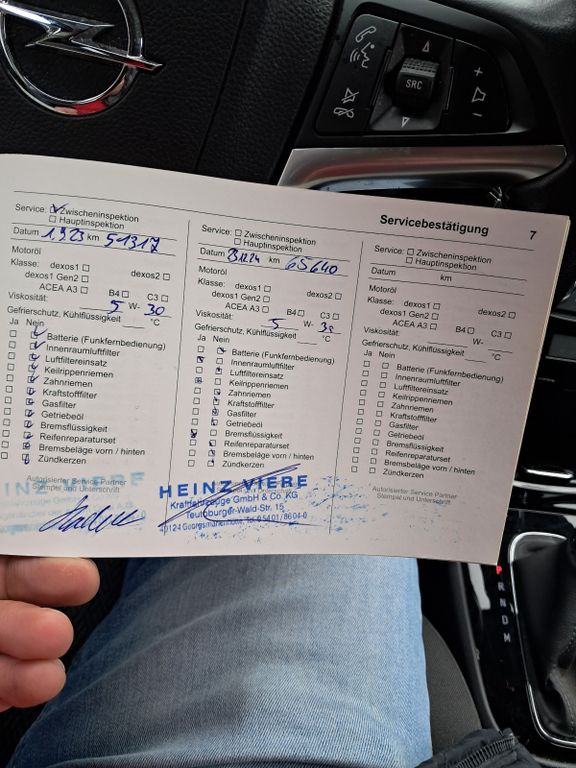 SRC
+
-
Servicebestätigung 7
Service: Zwischeninspektion
Hauptinspektion
Datum 1.9.23 km 51317
Motoröl
Klasse: dexos1 dexos2
dexos1 Gen2
ACEA A3 B4 C3
Viskosität: 5 W- 30
Gefrierschutz, Kühlflüssigkeit °C
Ja Nein
Batterie (Funkfernbedienung)
Innenraumluftfilter
Luftfiltereinsatz
Keilrippenriemen
Zahnriemen
Kraftstofffilter
Gasfilter
Getriebeöl
Bremsflüssigkeit
Reifenreparaturset
Bremsbeläge vorn / hinten
Zündkerzen
Autorisierter Service Partner
Stempel und Unterschrift
Service: Zwischeninspektion
Hauptinspektion
Datum km 65640
Motoröl
Klasse: dexos1 dexos2
dexos1 Gen2
ACEA A3 B4 C3
Viskosität: 5 W- 30
Gefrierschutz, Kühlflüssigkeit °C
Ja Nein
Batterie (Funkfernbedienung)
Innenraumluftfilter
Luftfiltereinsatz
Keilrippenriemen
Zahnriemen
Kraftstofffilter
Gasfilter
Getriebeöl
Bremsflüssigkeit
Reifenreparaturset
Bremsbeläge vorn / hinten
Zündkerzen
HEINZ VIERE
Kraftfahrzeuge GmbH & Co. KG
Teutoburger-Wald-Str. 15
49124 Georgsmarienhütte, Tel. 05401/8604-0
Service: Zwischeninspektion
Hauptinspektion
Datum km
Motoröl
Klasse: dexos1 dexos2
dexos1 Gen2
ACEA A3 B4 C3
Viskosität: W-
Gefrierschutz, Kühlflüssigkeit °C
Ja Nein
Batterie (Funkfernbedienung)
Innenraumluftfilter
Luftfiltereinsatz
Keilrippenriemen
Zahnriemen
Kraftstofffilter
Gasfilter
Getriebeöl
Bremsflüssigkeit
Reifenreparaturset
Bremsbeläge vorn / hinten
Zündkerzen
Autorisierter Service Partner
Stempel und Unterschrift
P
R
N
D
M